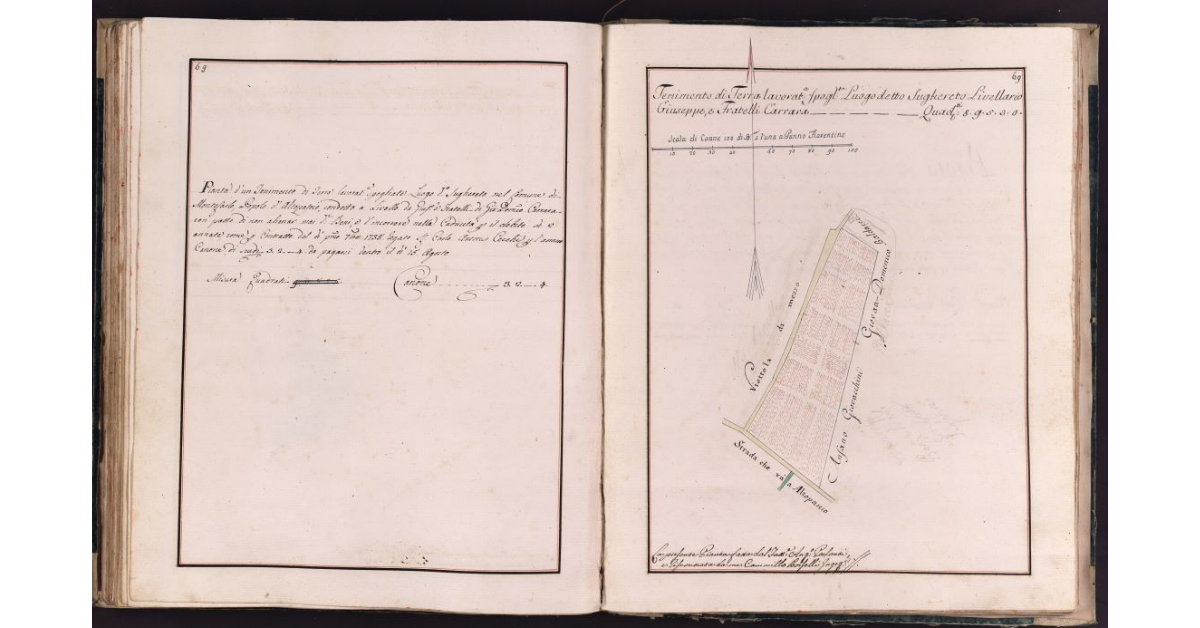 69
Pianta d'un Tenimento di Terre lavorat.e spogliate Luogo d.o Sughereto nel Comune di
Montecarlo Popolo d' Altopascio, condotto a Livello da Gius.e e Fratelli di Gio: Domco Carrara
con patto di non alienar mai d.i Beni, e d'incorrere nella Caducità
annate come p Contratto del dì 1758. rogato Carlo Antonio l'annuo
Canone di 3. 2. — 4 da pagarsi dentro il dì 15. Agosto
Misura Quadrati
Canone 3. 2. — 4.
69
Tenimento di Terra lavorat.a spogl.ta Luogo detto Sughereto Livellario
Giuseppe, e Fratelli Carrara Quad.ti 8. 9. 5. 3. 0.
Scala di Canne 100 di B.a l'una a Panno Fiorentino
10 20 30 40 60 70 80 90 100
Baldacci
Giovan-Domenico
Viottola di mezzo
Ansano Giovacchini
Strada che va a Altopascio
La presente Pianta